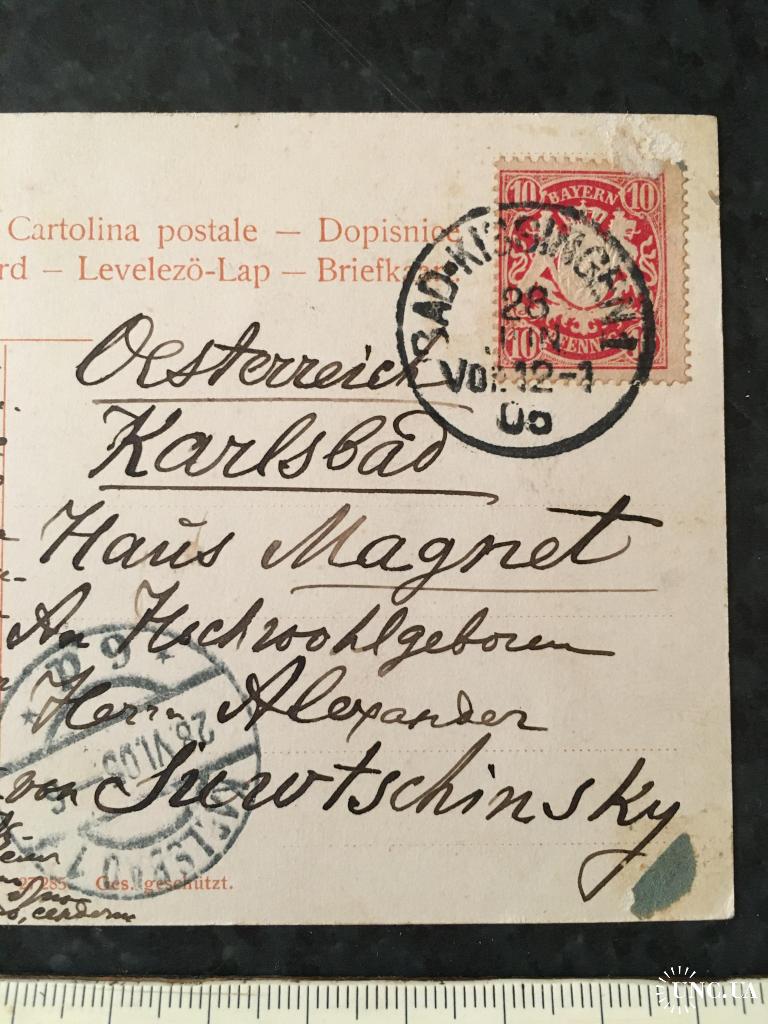 Cartolina postale — Dopisnice
rd — Levelezö-Lap — Briefka
10 BAYERN 10
10 PFENNIG
BAD-KISSINGEN 1
28
JUN
VOR 12-1
05
Oesterreich
Karlsbad
Haus Magnet
An Hochwohlgeboren
Herrn Alexander
von Siuwtschinsky
KARLSBAD 1
28.VI.05
9
27285. Ges. geschützt.
UNC.UA